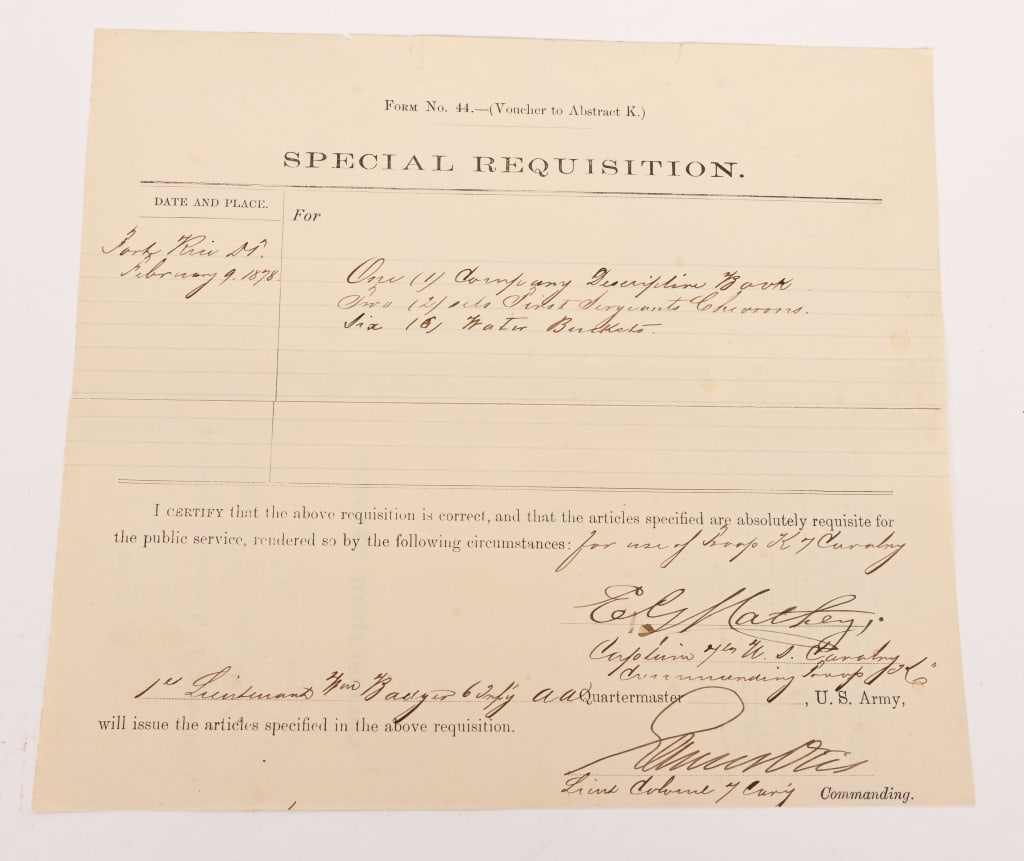 FORM NO. 44.—(Voucher to Abstract K.)
SPECIAL REQUISITION.
DATE AND PLACE.
For
Fort Rice D.T.
February 9. 1878.
One (1) Company Descriptive Book
Two (2) sets First Sergeants Chevrons.
Six (6) Water Buckets.
I CERTIFY that the above requisition is correct, and that the articles specified are absolutely requisite for
the public service, rendered so by the following circumstances: for use of Troop K 7 Cavalry
E G Mathey,
Captain 7th U. S. Cavalry
Commanding Troop "K"
1st Lieutenant Wm Badger 6 Infy A A Quartermaster , U. S. Army,
will issue the articles specified in the above requisition.
Otis
Lieut Colonel 7 Cavy Commanding.